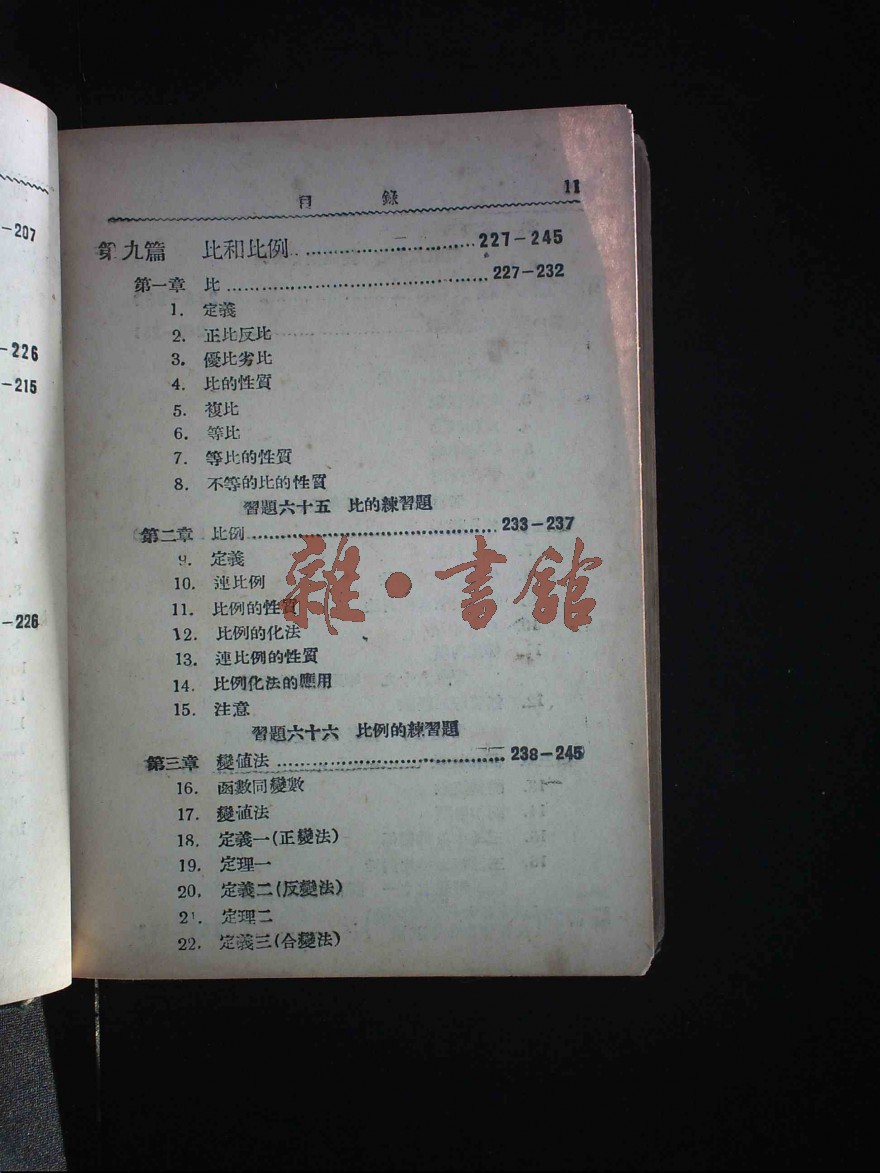 -207
-226
-215
-226
目 錄 11
第九篇 比和比例 ........................ 227-245
第一章 比 ........................ 227-232
1. 定義
2. 正比反比
3. 優比劣比
4. 比的性質
5. 複比
6. 等比
7. 等比的性質
8. 不等的比的性質
習題六十五 比的練習題
第二章 比例 ........................ 233-237
9. 定義
10. 連比例
11. 比例的性質
12. 比例的化法
13. 連比例的性質
14. 比例化法的應用
15. 注意
習題六十六 比例的練習題
第三章 變値法 ........................ 238-245
16. 函數同變數
17. 變値法
18. 定義一(正變法)
19. 定理一
20. 定義二(反變法)
21. 定理二
22. 定義三(合變法)
雜·書館